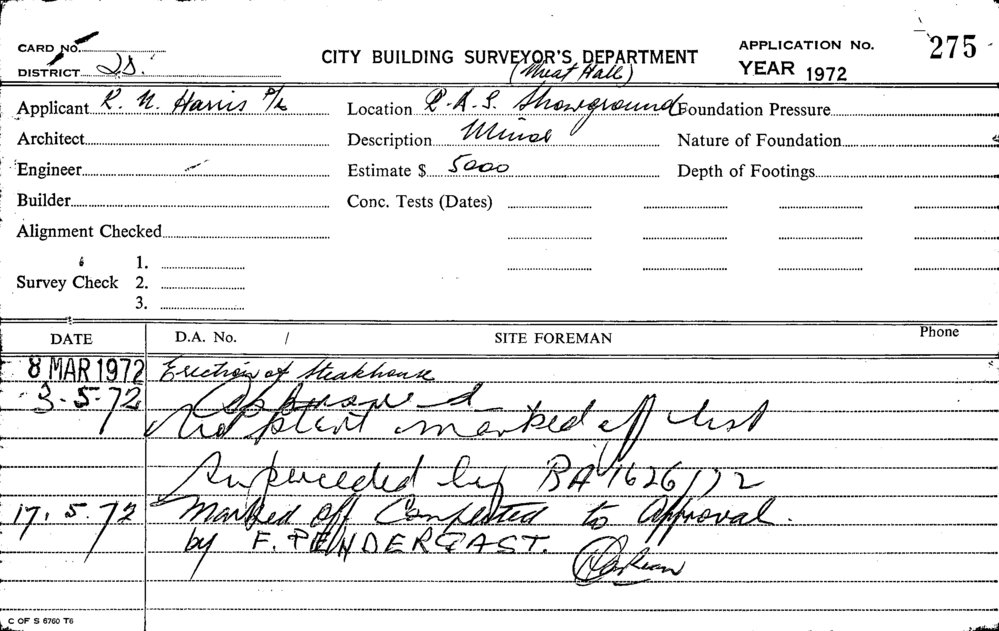 CARD NO.
DISTRICT 2S.
CITY BUILDING SURVEYOR'S DEPARTMENT
(Meat Hall)
APPLICATION No. 275
YEAR 1972
Applicant R. N. Harris P/L
Location R.A.S. Showground
Foundation Pressure
Architect
Description Minor
Nature of Foundation
Engineer
Estimate $ 5000
Depth of Footings
Builder
Conc. Tests (Dates)
Alignment Checked
Survey Check 1.
2.
3.
DATE D.A. No. / SITE FOREMAN Phone
8 MAR 1972 Erection of Steakhouse
3.5.72 Approved
marked off list
Superceded by BA 1626/72
17.5.72 Marked off Completed to Approval.
by F. PENDERGAST.
C OF S 6760 T6